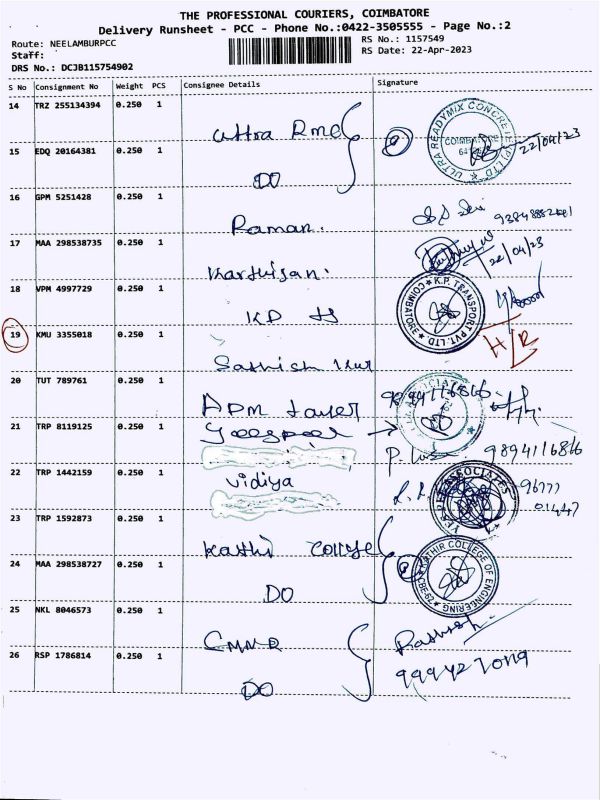 THE PROFESSIONAL COURIERS, COIMBATORE
Delivery Runsheet - PCC - Phone No.:0422-3505555 - Page No.:2
Route: NEELAMBURPCC
RS No.: 1157549
Staff:
RS Date: 22-Apr-2023
DRS No.: DCJB115754902
S No Consignment No Weight PCS Consignee Details Signature
14 TRZ 255134394 0.250 1
ULTRA READYMIX CONCRETE (P) LTD
22/04/23
15 EDQ 20164381 0.250 1
DO
16 GPM 5251428 0.250 1
Raman.
17 MAA 298538735 0.250 1
22/04/23
18 VPM 4997729 0.250 1
K.P. TRANSPORT PVT. LTD
COIMBATORE
KP
19 KMU 3355018 0.250 1
H/R
Sathish
20 TUT 789761 0.250 1
9894116866
21 TRP 8119125 0.250 1
9894116866
22 TRP 1442159 0.250 1
Vidiya
ASSOCIATES
96777
01447
23 TRP 1592873 0.250 1
College
24 MAA 298538727 0.250 1
KATHIR COLLEGE OF ENGINEERING
CBE-62
DO
25 NKL 8046573 0.250 1
26 RSP 1786814 0.250 1
DO